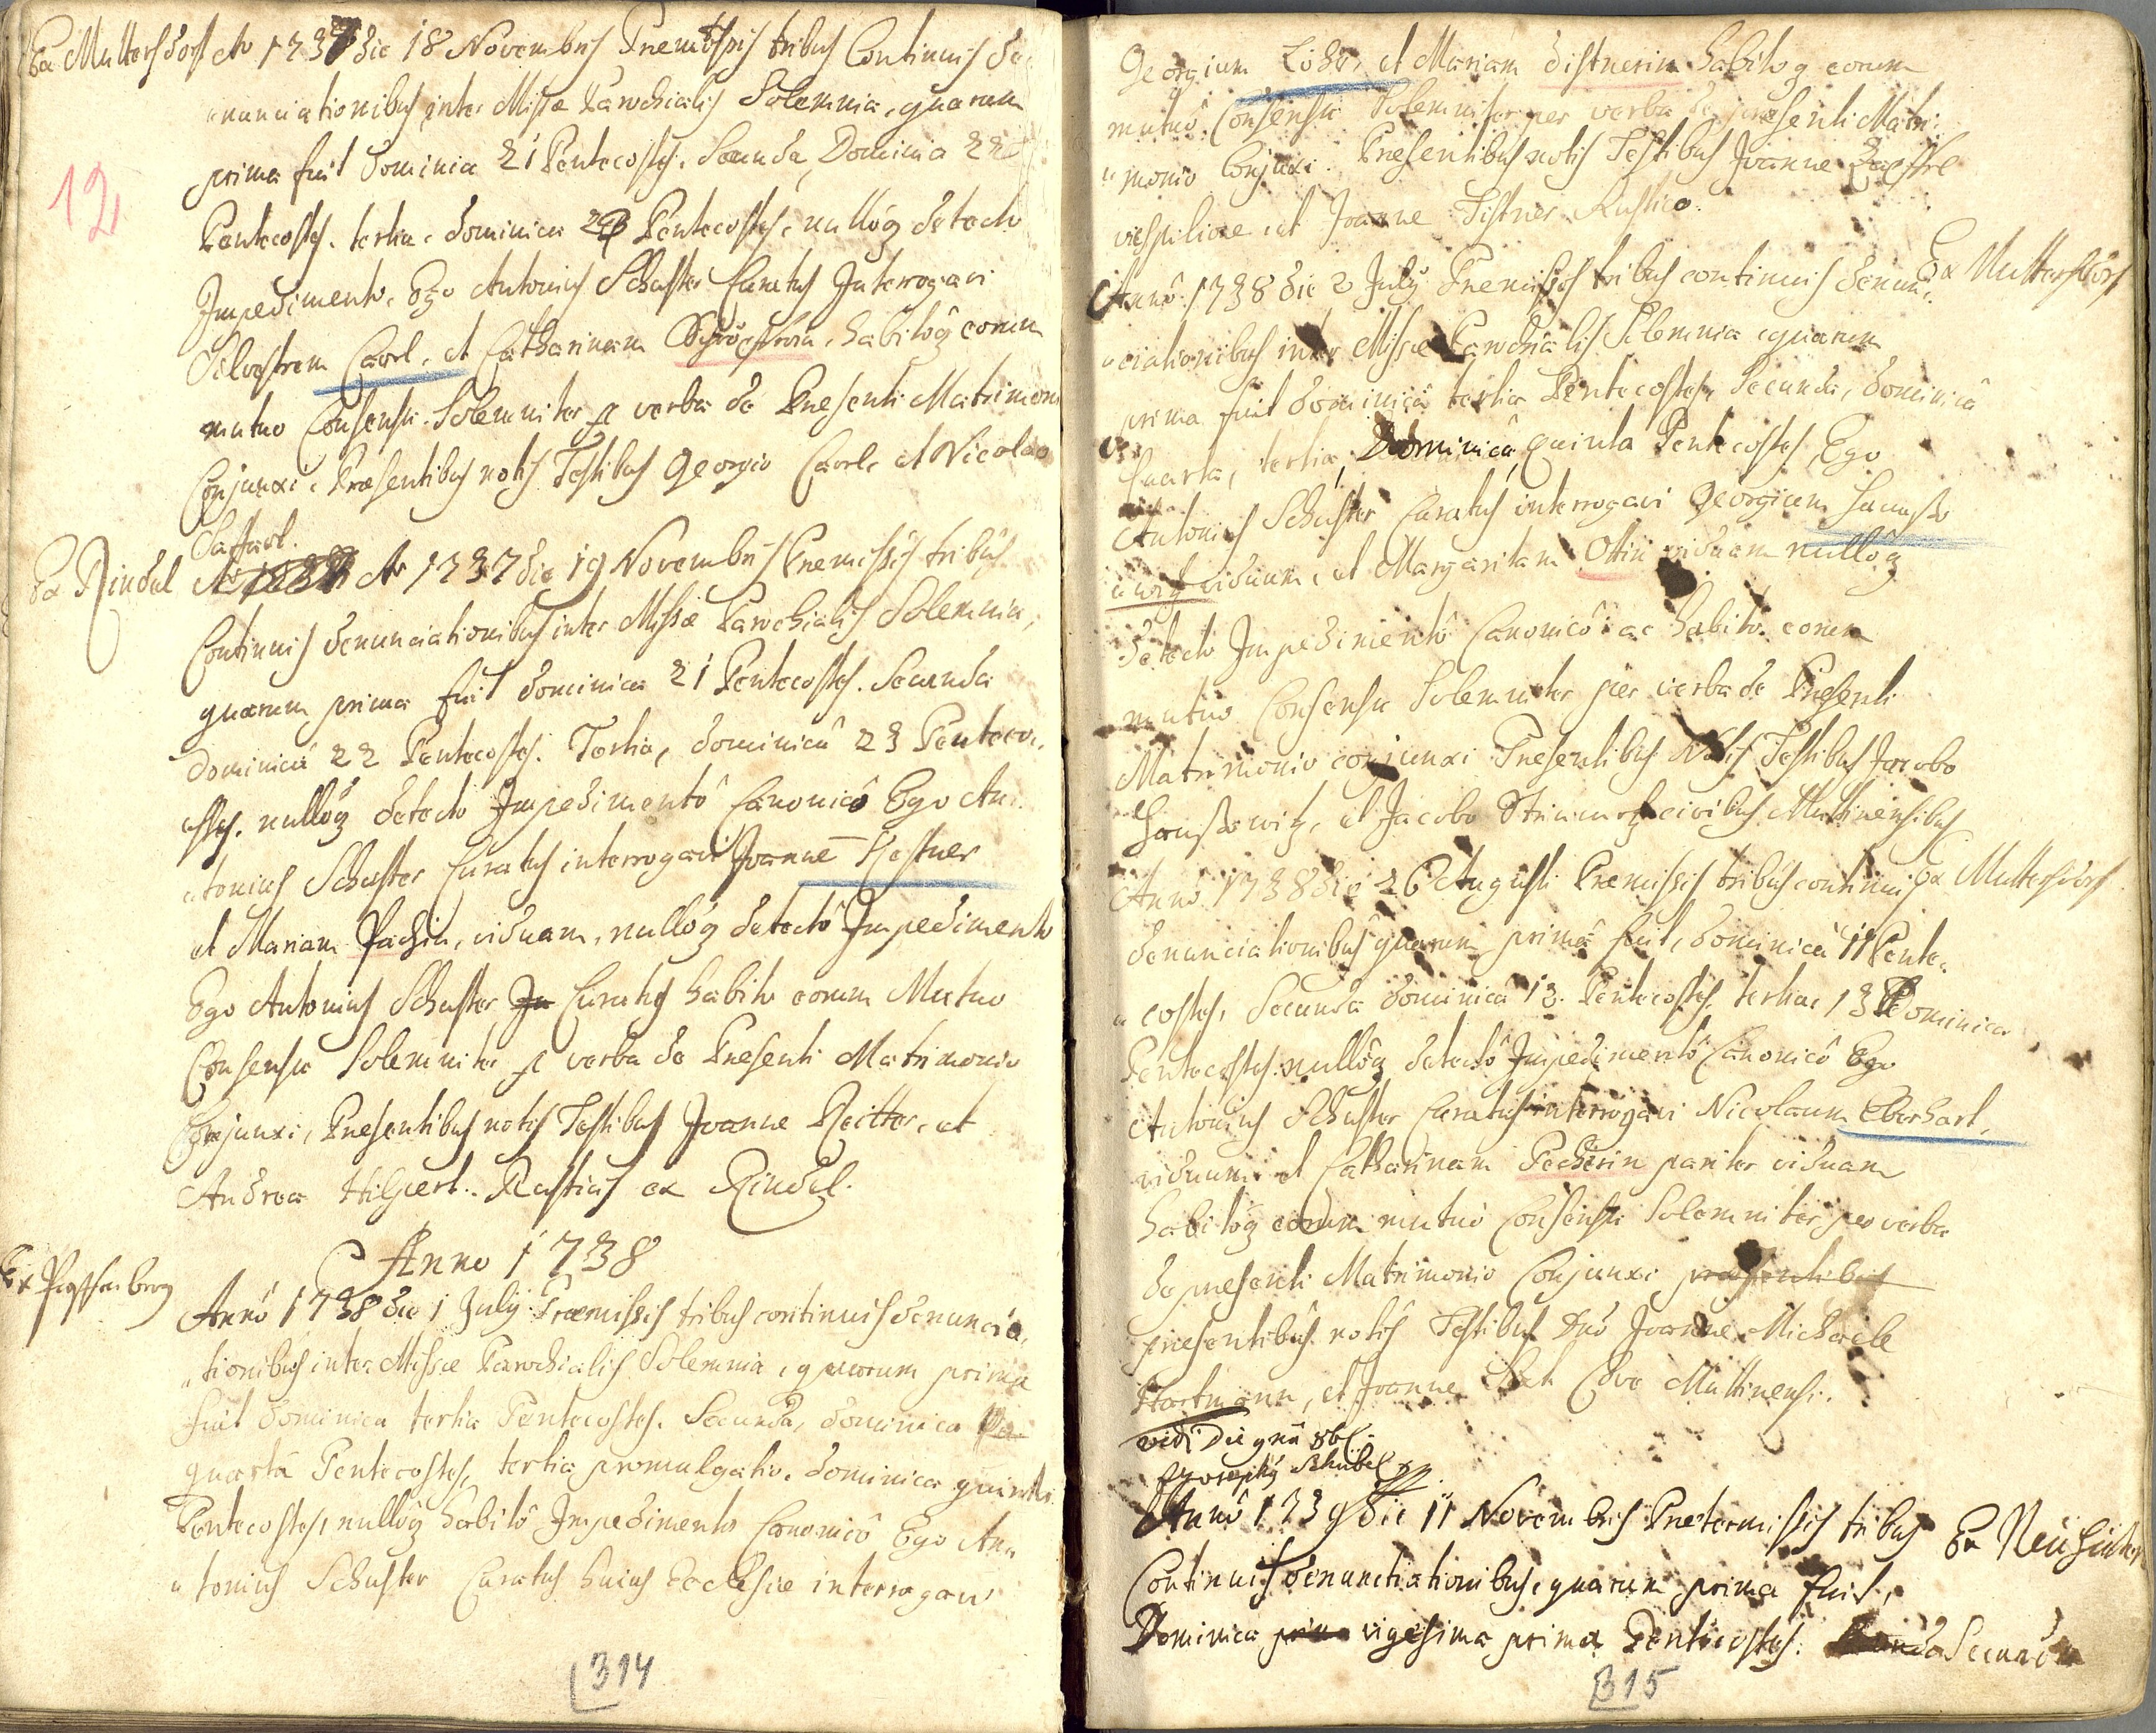 Ex Muttersdorf Ao 1737 die 18 Novembris Premissis tribus Continuis de
nunciationibus inter Missæ Parochialis Solemnia, quarum
prima fuit Dominica 21 Pentecostes. Secunda, Dominica 22
12
Pentecostes. tertia, dominica 23 Pentecostes, nullóq detecto
Impedimento, Ego Antonius Schuster Curatus Interrogavi
Silvestrem Carl, et Catharinam habitóq eorum
mutuo Consensu Solemniter p verba de Presenti Matrimon
Conjunxi, Præsentibus notis Testibus Georgio Carl, et Nicolao
Ex Rindel Ao 1737 die 19 Novembris Premissis tribus
Continuis denunciationibus inter Missæ Parochialis Solemnia,
quarum prima fuit dominica 21 Pentecostes. Secunda
dominicâ 22 Pentecostes. Tertia, dominicâ 23 Penteco
stes. nullóq detecto Impedimentô Canonicô Ego An
tonius Schuster Curatus interrogavi Joannē
et Mariam Pachin, viduam, nullóq detectô Impedimento
Ego Antonius Schuster Curatus habito eorum Mutuo
Consensu Solemniter p verba de Presenti Matrimonio
Conjunxi, Presentibus notis Testibus Joanne Reitter, et
Andrea Hilpert. Rusticis ex Rindel.
Anno 1738
Annô 1738 die 1 July Præmissis tribus continuis denuncia
tionibus inter Missæ Parochialis Solemnia, quarum prima
fuit dominica tertia Pentecostes. Secunda, dominica
quarta Pentecostes, tertia promulgatio, dominica quinta
Pentecostes, nullóq habitô Impedimento Canonicô Ego An
tonius Schuster Curatus huius Ecclesiæ interrogavi
314
Georgium et Mariam distnerin habitoq eorum
mutuô Consensu Solemniter per verba de presenti Matri
monio Conjunxi. Presentibus notis Testibus Joanne
et Joanne Distner Rustico.
Ex Muttersdorf
Annô 1738 die 2 July Premissis tribus continuis denun
ciationibus inter Missæ Parochialis Solemnia quarum
prima fuit dominicâ tertia Pentecostes, Secunda, dominicâ
Quarta, tertia, Dominicâ, quinta Pentecostes, Ego
Antonius Schuster Curatus interrogavi Georgium
viduum, et Margaritam Ottin viduam nullóq
detecto Impedimentô Canonicô ac habito eorum
mutuo Consensu Solemniter per verba de Presenti
Matrimonio conjunxi Presentibus Notis Testibus Jacobo
et Jacobo civibus Muttinensibus
Annô 1738 die 26 Augusti Premissis tribus continuis Ex Muttersdorf
denunciationibus quarum prima fuit, dominicâ 11 Pente
costes, Secunda dominicâ 12. Pentecostes, tertia, 13 Dominica
Pentecostes. nullóq detectô Impedimentô Canonicô Ego
Antonius Schuster Curatus interrogavi Nicolaum Eberhart,
viduum et Catharinam Pecherin pariter viduam
habitóq eorum mutuô Consensu Solemniter per verba
de presenti Matrimonio Conjunxi presentibus
presentibus notis Testibus Dnô Joanne Michaele
Hartmann, et Joanne Cive Muttinensi.
vidi Die
Annô 1739 Die 11 Novembris Pretermissis tribus
Continuis denunctiationibus, quarum prima fuit,
Dominica prima vigesima prima Pentecostes. Secunda
315